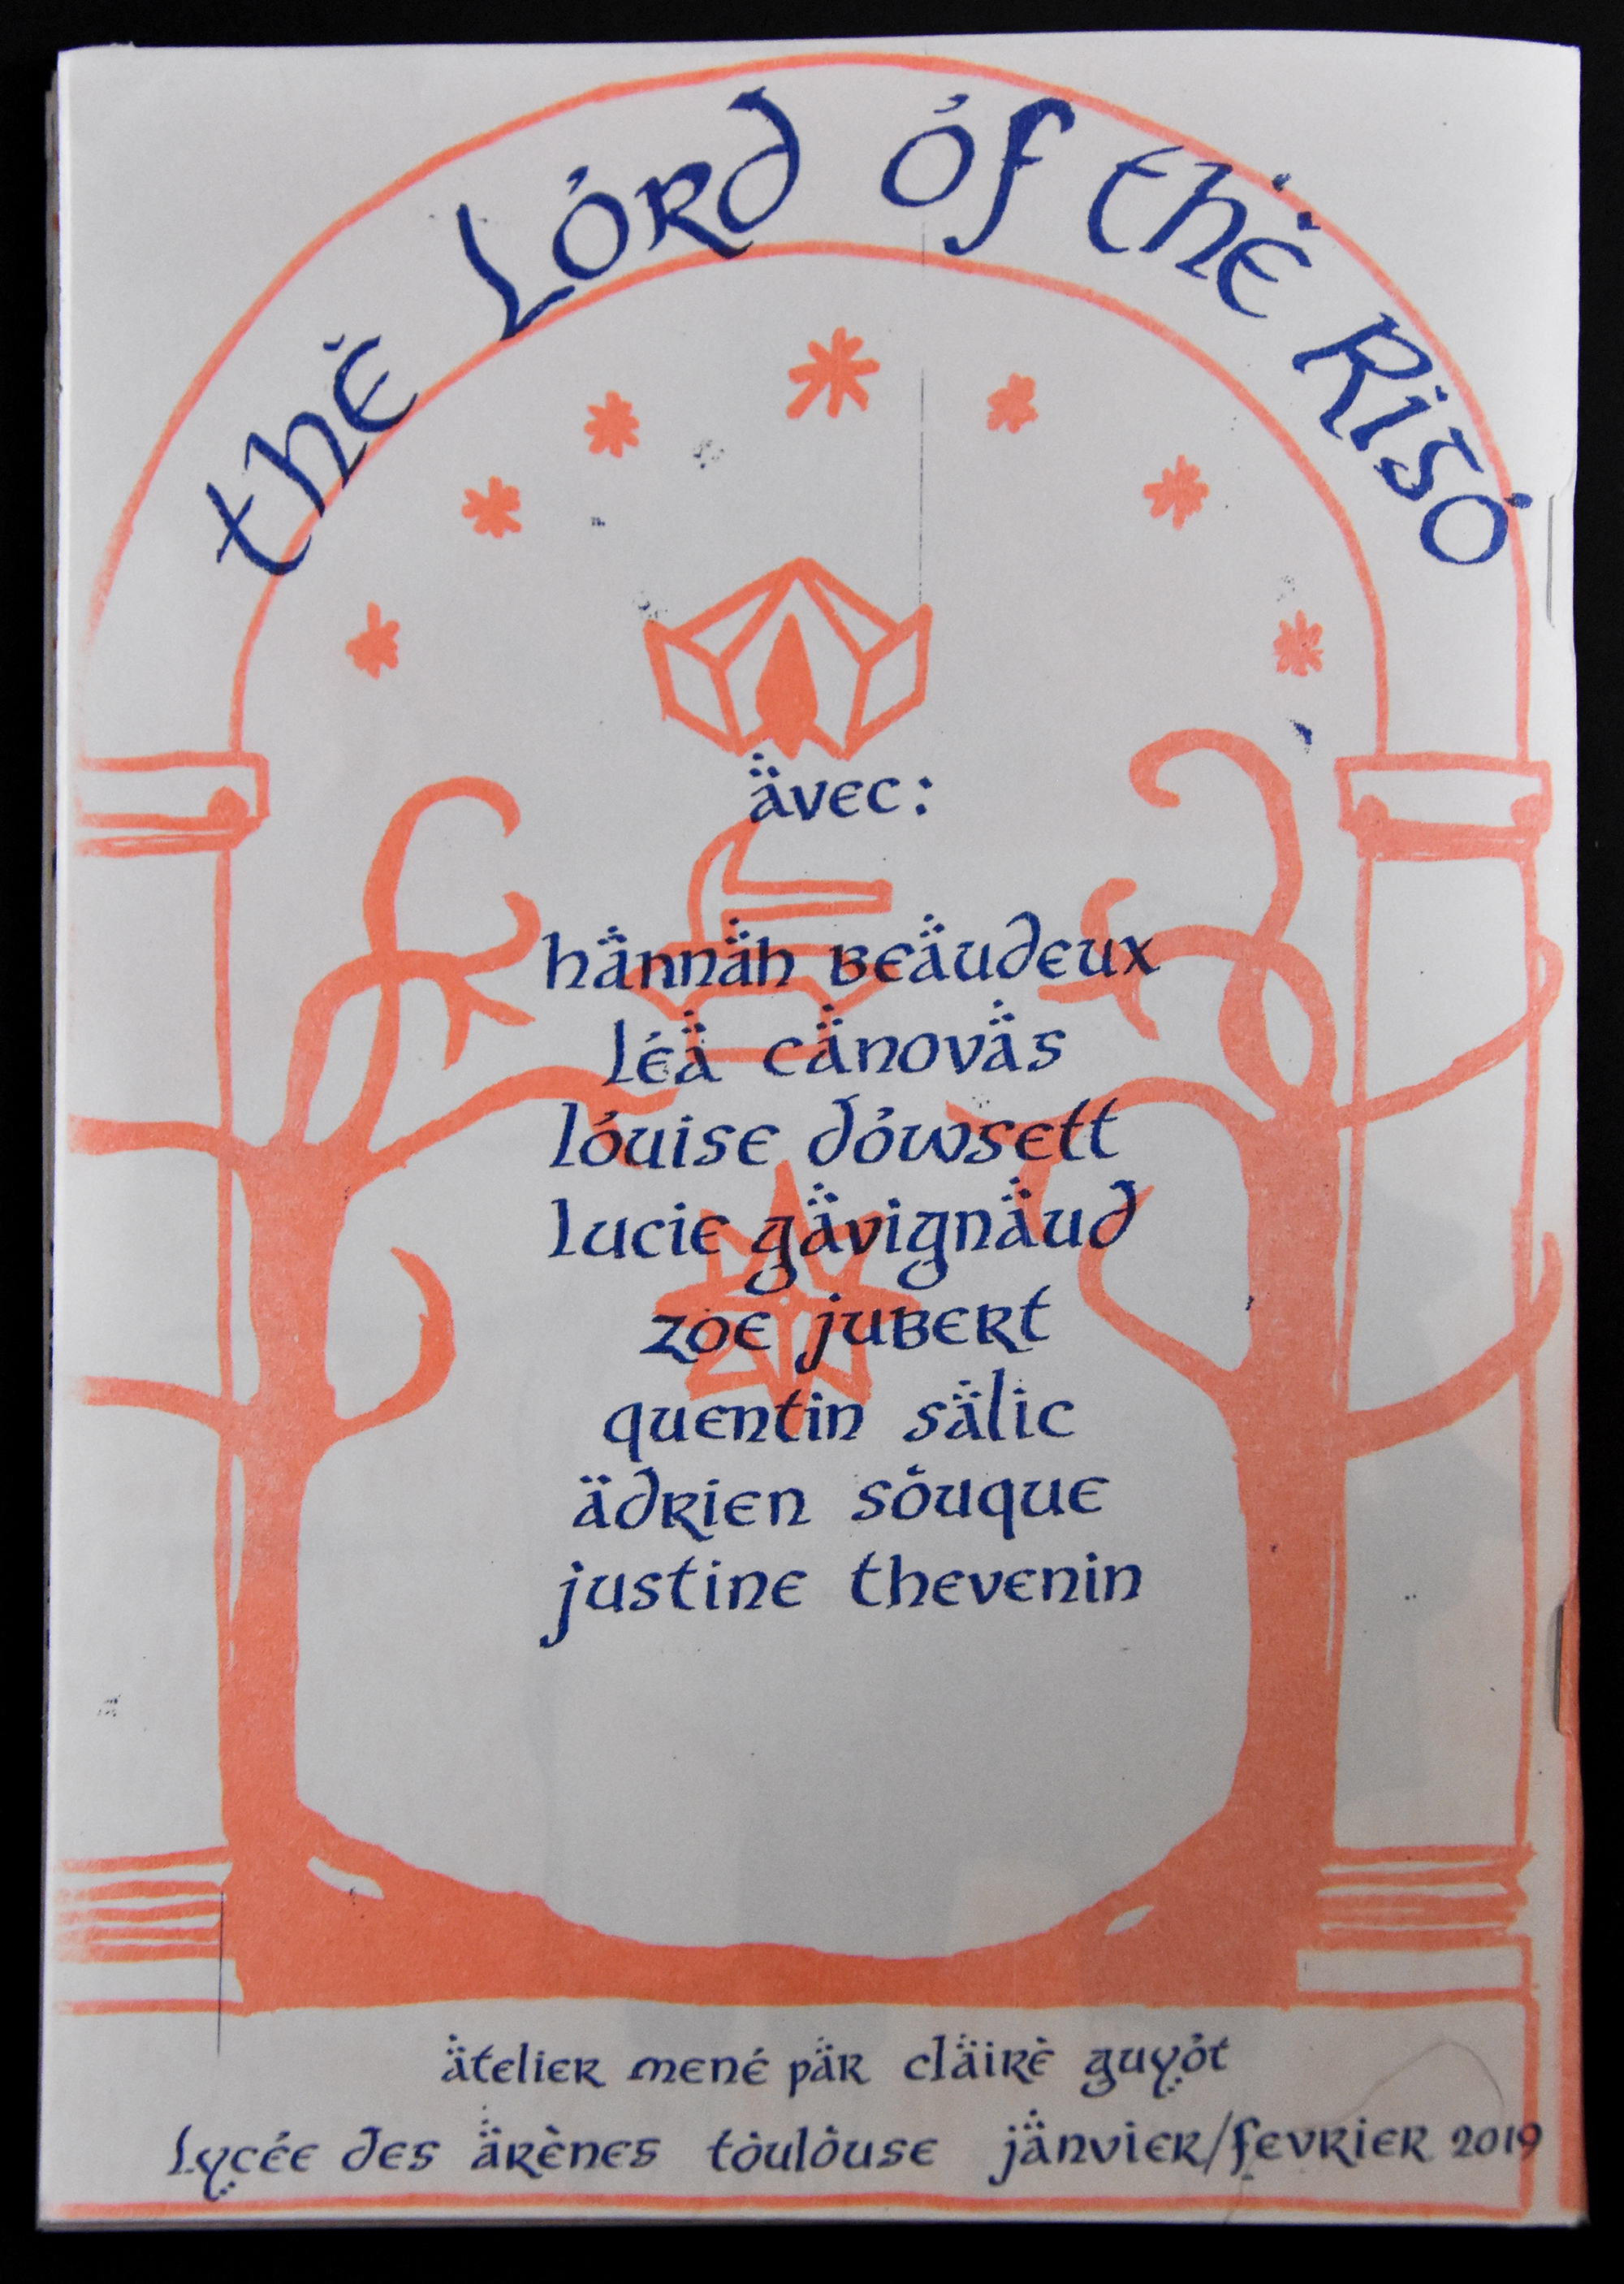 thé Lórd óf thé Risó
ävec:
hännäh Beäudeux
léä cänoväs
lóuise dówsett
lucie gävignäud
zoe jubert
quentin sälic
ädrien sóuque
justine thevenin
ätelier mené pär cläiré guyót
Lycée des ärènes tóulóuse jänvier/fevrier 2019